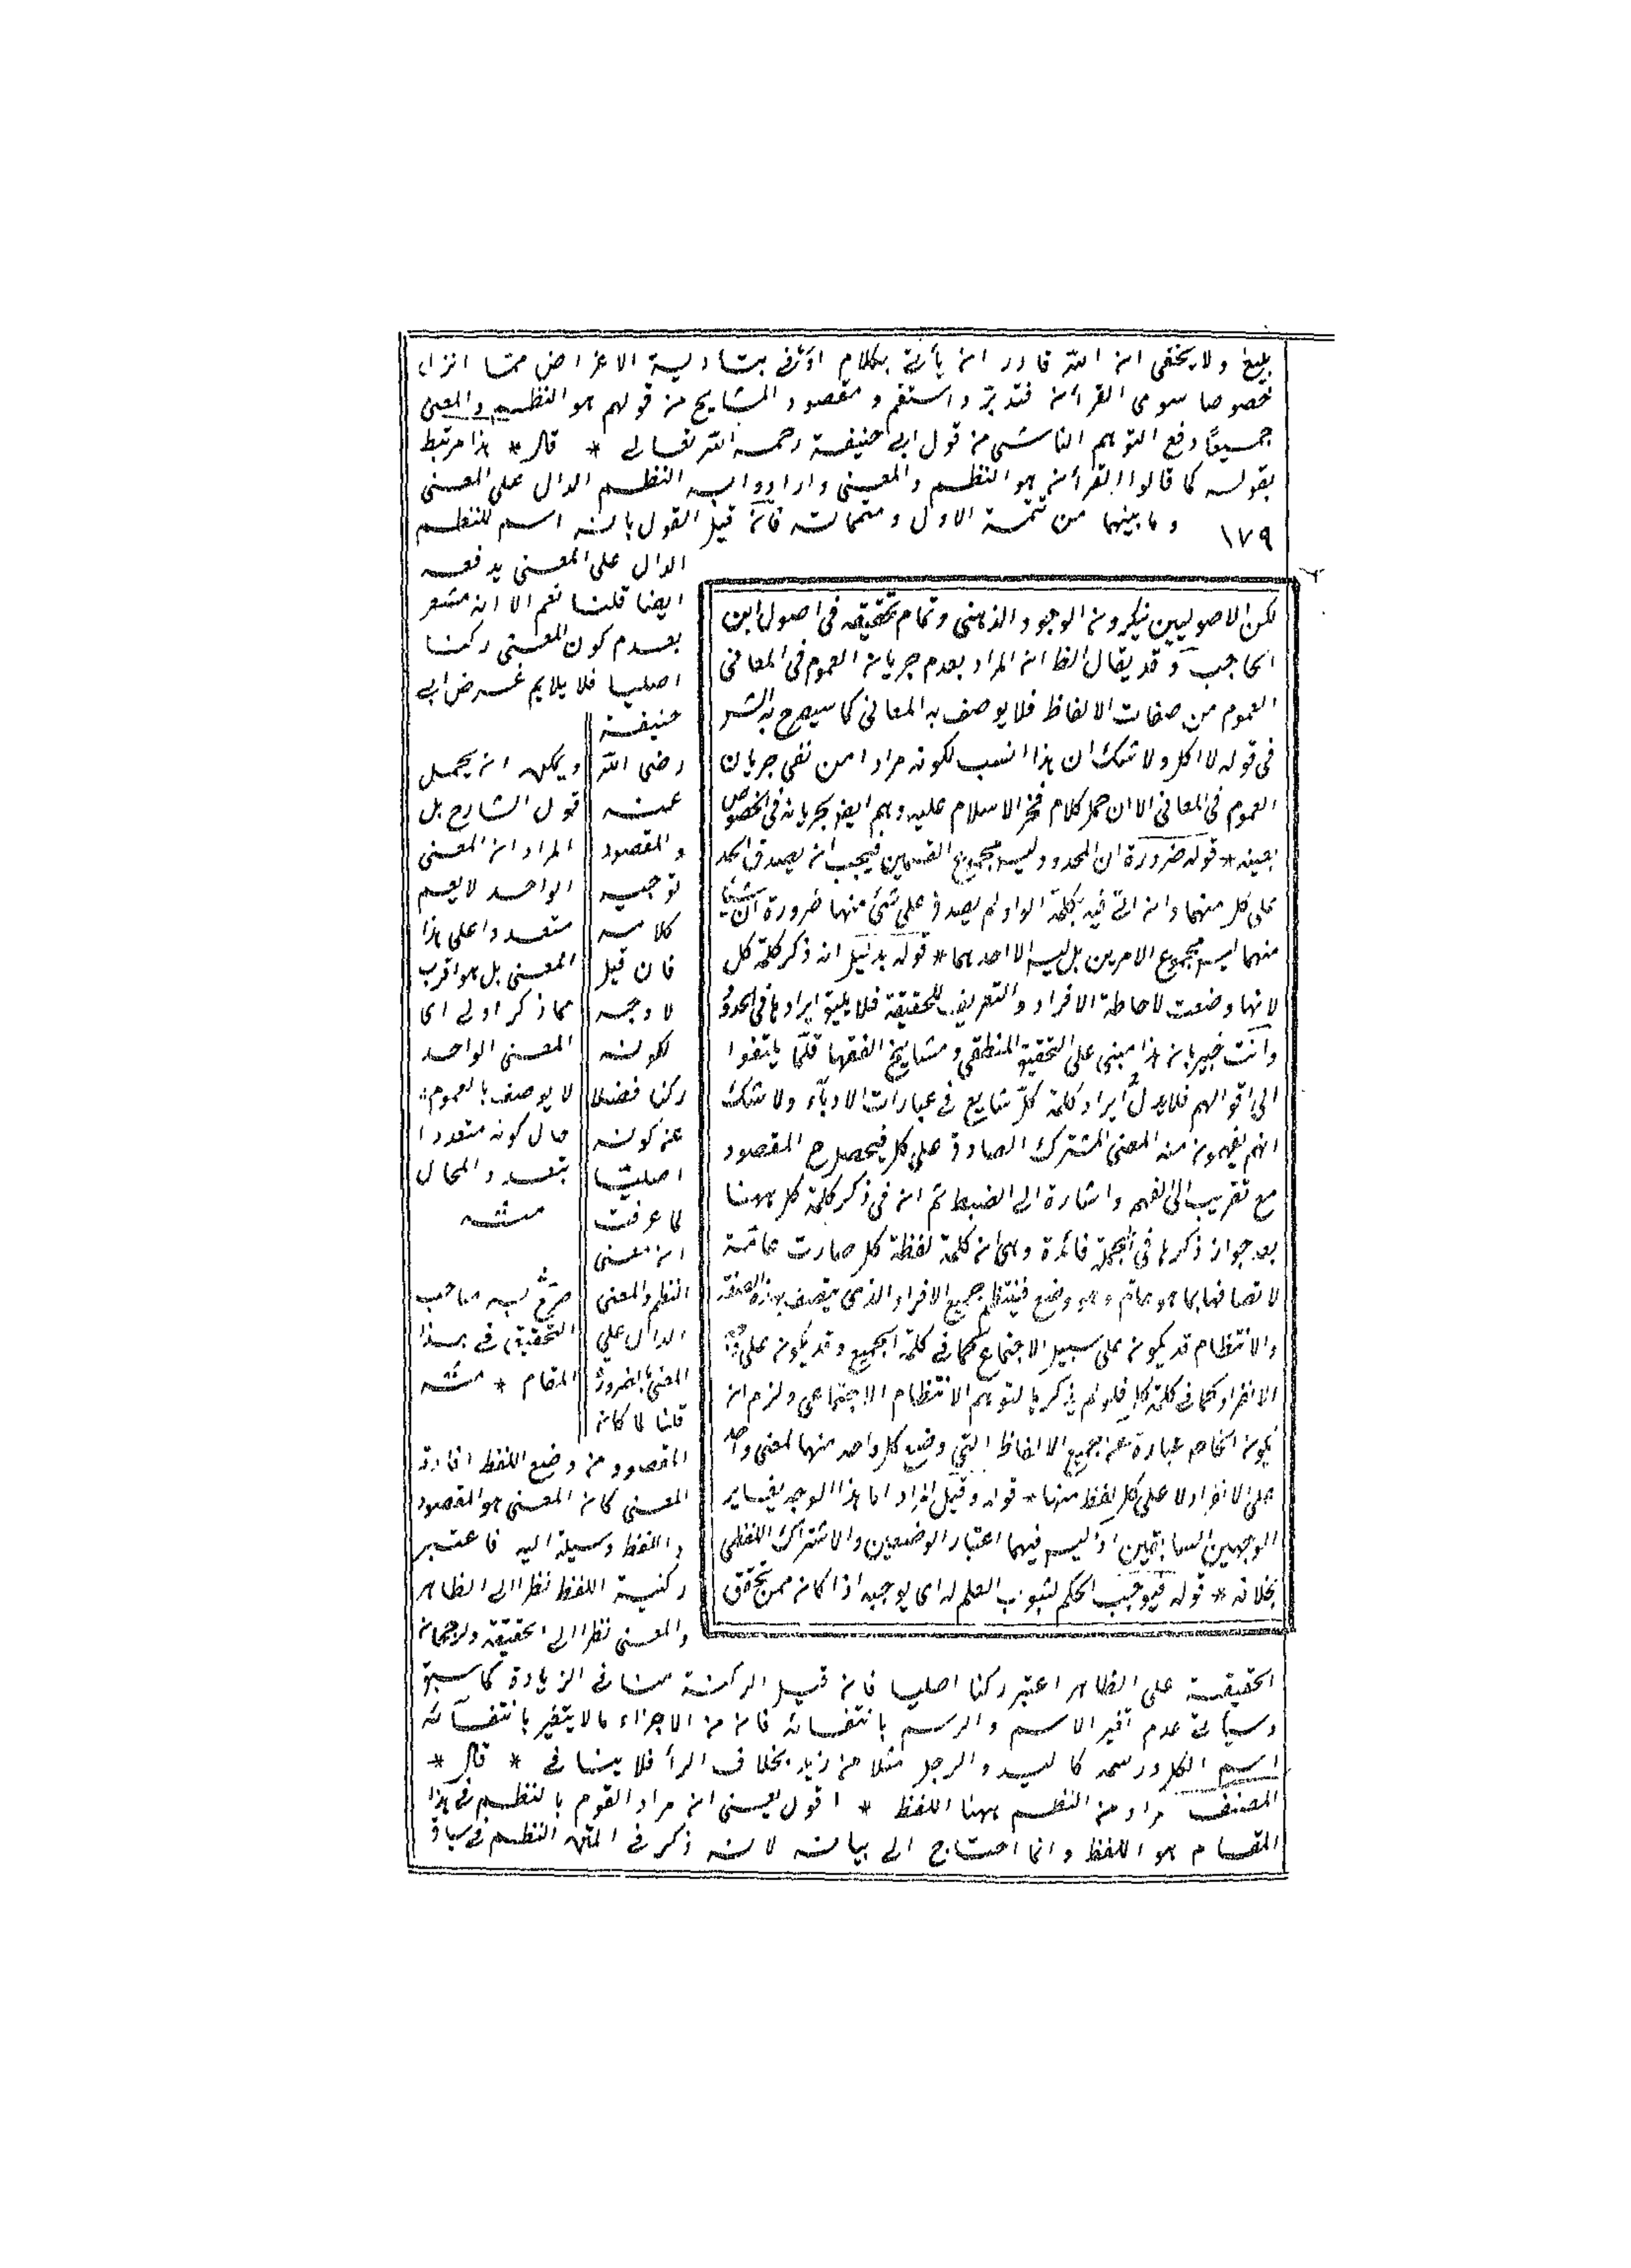 بليغ ولا يخفى ان الله قادر ان يأتي بكلام اوفى بتادية الاغراض مما انزله
خصوصا سوى القرأن فتدبر واستقم و مقصود المشايخ من قولهم هو النظم والمعنى
جميعا دفع التوهم الناشى من قول ابى حنيفة رحمه الله تعالى * قال * هذا مرتبط
بقوله كما قالوا القرأن هو النظم والمعنى وارادوا به النظم الدال على المعنى
١٧٩ وما بينهما من تتمة الاول ومتمماته فان قيل القول بانه اسم للنظم
الدال على المعنى يدفعه
ايضا قلنا نعم الا انه مشعر
بعدم كون المعنى ركنا
اصليا فلا يلايم غرض ابى
حنيفة
رضى الله
عنه
والمقصود
توجيه
كلامه
فان قيل
لا وجه
لكونه
ركنا فضلا
عن كونه
اصليا
لما عرفت
ان معنى
النظم والمعنى
الدال على
المعنى بالضرورة
قلنا لما كان
المقصود من وضع اللفظ افادة
المعنى كان المعنى هو المقصود
واللفظ وسيلة اليه فاعتبر
ركنية اللفظ نظرا الى الظاهر
والمعنى نظرا الى الحقيقة ولرجحان
الحقيقة على الظاهر اعتبر ركنا اصليا فان قيل الركنية تنافى الزيادة كما سبق
وسيأتى عدم تغير الاسم والرسم بانتفائه فان من الاجزاء ما لا يتغير بانتفائه
اسم الكل ورسمه كاليد والرجل مثلا من زيد بخلاف الرأس فلا ينافى * قال *
المصنف مراد من النظم ههنا اللفظ * اقول يعنى ان مراد القوم بالنظم فى هذا
المقام هو اللفظ وانما احتاج الى بيانه لانه ذكر فى المتن النظم فى سياق
ويمكن ان يحمل
قول الشارح بل
المراد ان المعنى
الواحد لا يعم
متعددا على هذا
المعنى بل هو اقرب
مما ذكر اولى اى
المعنى الواحد
لا يوصف بالعموم
حال كونه متعددا
بتعدد المحال
منه
صرح به صاحب
التحقيق فى هذا
المقام * منه
لكن الاصوليين ينكرون الوجود الذهنى وتمام تحقيقه فى اصول ابن
الحاجب وقد يقال الظ ان المراد بعدم جريان العموم فى المعانى
العموم من صفات الالفاظ فلا يوصف به المعانى كما سيصرح به الشر
فى قوله لا اكل ولا شك ان هذا انسب لكونه مرادا من نفى جريان
العموم فى المعانى الا ان حمل كلام فخر الاسلام عليه وهم ايضا بجريانه فى الخصوص
بعينه * قوله ضرورة ان المحدود ليس مجموع القسمين فيجب ان يصدق الحد
على كل منهما وان اتى فيه بكلمة الواو لم يصدق على شئ منهما ضرورة ان شيئا
منهما ليس مجموع الامرين بل ليس الا احدهما * قوله بدليل انه ذكر كلمة كل
لانها وضعت لاحاطة الافراد والتعريف للحقيقة فلا يليق ايرادها فى الحدود
وانت خبير بان هذا مبنى على التحقيق المنطقى ومشايخ الفقها قلما يلتفتوا
الى اقوالهم فلا يدل ايراد كلمة كل شايع فى عبارات الادباء ولا شك
انهم يفهمون منه المعنى المشترك الصادق على كل فيحصل ح المقصود
مع تقريب الى الفهم واشارة الى الضبط ثم ان فى ذكر كلمة كل ههنا
بعد جواز ذكرها فى الجملة فائدة وهى ان كلمة لفظة كل صارت عامة
لاتصافها بما هو عام وهو وضع فينتظم جميع الافراد الذى يتصف بهذه الصفة
والانتظام قد يكون على سبيل الاجتماع كما فى كلمة الجميع وقد يكون على
الانفراد كما فى كلمة كل فلو لم يذكرها لتوهم الانتظام الاجتماعى ولزم ان
يكون الخاص عبارة عن جميع الالفاظ التى وضع كل واحد منها لمعنى واحد
على الانفراد لا على كل لفظ منها * قوله وقيل المراد اما هذا الوجه يغاير
الوجهين السابقين اذ ليس فيهما اعتبار الوضعين والاشتراك اللفظى
بخلافه * قوله فيوجب الحكم لثبوت العلم له اى يوجبه اذا كان ممن تحقق